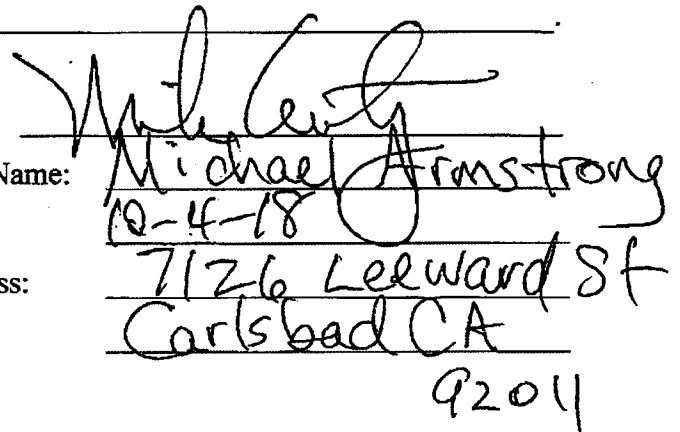 Name: Michael Armstrong
10-4-18
ss: 7126 Leeward St
Carlsbad CA
92011